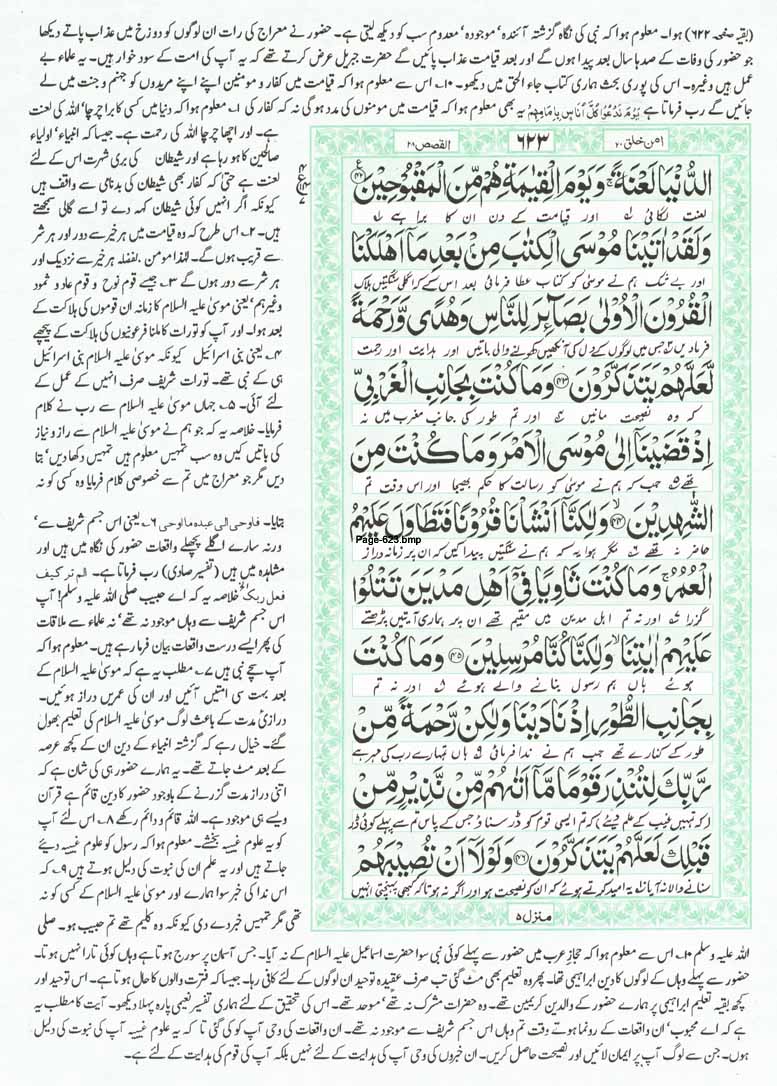 (بقیہ صفحہ ۶۲۲) ہوا۔ معلوم ہوا کہ نبی کی نگاہ گزشتہ آئندہ' موجودہ' معدوم سب کو دیکھ لیتی ہے۔ حضور نے معراج کی رات ان لوگوں کو دوزخ میں عذاب پاتے دیکھا
جو حضور کی وفات کے صدہا سال بعد پیدا ہوں گے اور بعد قیامت عذاب پائیں گے حضرت جبریل عرض کرتے تھے کہ یہ آپ کی امت کے سود خوار ہیں۔ یہ علماء بے
عمل ہیں وغیرہ۔ اس کی پوری بحث ہماری کتاب جاء الحق میں دیکھو۔ ۱۰۔ اس سے معلوم ہوا کہ قیامت میں کفار و مومنین اپنے اپنے مریدوں کو جہنم و جنت میں لے
جائیں گے رب فرماتا ہے یَوْمَ نَدْعُوْا كُلَّ اُنَاسٍ بِاِمَامِهِمْ یہ بھی معلوم ہوا کہ قیامت میں مومنوں کی مدد ہوگی نہ کہ کفار کی ۱۔ معلوم ہوا کہ دنیا میں کسی کا برا چرچا اللہ کی لعنت
ہے۔ اور اچھا چرچا اللہ کی رحمت ہے۔ جیسا کہ انبیاء' اولیاء
صالحین کا ہو رہا ہے اور شیطان کی بری شہرت اس کے لئے
لعنت ہے حتیٰ کہ کفار بھی شیطان کی بدنامی سے واقف ہیں
کیونکہ اگر انہیں کوئی شیطان کہہ دے تو اسے گالی سمجھتے
ہیں۔ ۲۔ اس طرح کہ وہ قیامت میں ہر خیر سے دور اور ہر شر
سے قریب ہوں گے۔ لہٰذا مومن ،بفضلہ ہر خیر سے نزدیک اور
ہر شر سے دور ہوں گے ۳۔ جیسے قوم نوح و قوم عاد و ثمود
وغیرہم' یعنی موسیٰ علیہ السلام کا زمانہ ان قوموں کی ہلاکت کے
بعد ہوا۔ اور آپ کو تورات کا ملنا فرعونیوں کی ہلاکت کے پیچھے
۴۔ یعنی بنی اسرائیل کیونکہ موسیٰ علیہ السلام بنی اسرائیل
ہی کے نبی تھے۔ تورات شریف صرف انہیں کے عمل کے
لئے آئی۔ ۵۔ جہاں موسیٰ علیہ السلام سے رب نے کلام
فرمایا۔ خلاصہ یہ کہ جو ہم نے موسیٰ علیہ السلام سے راز و نیاز
کی باتیں کیں وہ سب تمہیں معلوم ہیں تمہیں دکھا دیں' بتا
دیں مگر جو معراج میں تم سے خصوصی کلام فرمایا وہ کسی کو نہ
بتایا۔ فاوحی الی عبدہ ما اوحی ۶۔ یعنی اس جسم شریف سے'
ورنہ سارے اگلے پچھلے واقعات حضور کی نگاہ میں ہیں اور
مشاہدہ میں ہیں (تفسیر صاوی) رب فرماتا ہے۔ الم تر کیف
فعل ربک خلاصہ یہ کہ اے حبیب صلی اللہ علیہ وسلم! آپ
اس جسم شریف سے وہاں موجود نہ تھے' نہ علماء سے ملاقات
کی پھر ایسے درست واقعات بیان فرما رہے ہیں۔ معلوم ہوا کہ
آپ سچے نبی ہیں ۷۔ مطلب یہ ہے کہ موسیٰ علیہ السلام کے
بعد بہت سی امتیں آئیں اور ان کی عمریں دراز ہوئیں۔
درازئ مدت کے باعث لوگ موسیٰ علیہ السلام کی تعلیم بھول
گئے۔ خیال رہے کہ گزشتہ انبیاء کے دین ان کے کچھ عرصہ
کے بعد مٹ جاتے تھے۔ یہ ہمارے حضور ہی کی شان ہے کہ
اتنی دراز مدت گزرنے کے باوجود حضور کا دین قائم ہے قرآن
ویسے ہی موجود ہے۔ اللہ قائم و دائم رکھے ۸۔ اس لئے آپ
کو یہ علوم غیبیہ بخشے۔ معلوم ہوا کہ رسول کو علوم غیبیہ دیئے
جاتے ہیں اور یہ علم ان کی نبوت کی دلیل ہوتے ہیں ۹۔ کہ
اس ندا کی خبر سوا ہمارے اور موسیٰ علیہ السلام کے کسی کو نہ
تھی مگر تمہیں خبر دے دی کیونکہ وہ کلیم تھے تم حبیب ہو۔ صلی
امن خلق ۲۰
۶۲۳
القصص ۲۸
الدُّنْيَا لَعْنَةً ۚ وَيَوْمَ الْقِيٰمَةِ هُمْ مِّنَ الْمَقْبُوْحِيْنَ ﴿۴۲﴾
لعنت لگائی اور قیامت کے دن ان کا برا ہے
وَلَقَدْ اٰتَيْنَا مُوْسَى الْكِتٰبَ مِنْۢ بَعْدِ مَآ اَهْلَكْنَا
اور بے شک ہم نے موسیٰ کو کتاب عطا فرمائی بعد اس کے کہ اگلی سنگتیں ہلاک
الْقُرُوْنَ الْاُوْلٰى بَصَآئِرَ لِلنَّاسِ وَهُدًى وَّرَحْمَةً
فرما دیں جس میں لوگوں کے دل کی آنکھیں کھولنے والی باتیں اور ہدایت اور رحمت
لَّعَلَّهُمْ يَتَذَكَّرُوْنَ ﴿۴۳﴾ وَمَا كُنْتَ بِجَانِبِ الْغَرْبِيِّ
کہ وہ نصیحت مانیں اور تم طور کی جانب مغرب میں نہ
اِذْ قَضَيْنَآ اِلٰى مُوْسَى الْاَمْرَ وَمَا كُنْتَ مِنَ
تھے جب کہ ہم نے موسیٰ کو رسالت کا حکم بھیجا اور اس وقت تم
الشّٰهِدِيْنَ ﴿۴۴﴾ وَلٰكِنَّآ اَنْشَاْنَا قُرُوْنًا فَتَطَاوَلَ عَلَيْهِمُ
Page-623.bmp
حاضر نہ تھے مگر ہوا یہ کہ ہم نے سنگتیں پیدا کیں کہ ان پر زمانہ دراز
الْعُمُرُ ۚ وَمَا كُنْتَ ثَاوِيًا فِيْٓ اَهْلِ مَدْيَنَ تَتْلُوْا
گزرا اور نہ تم اہل مدین میں مقیم تھے ان پر ہماری آیتیں پڑھتے
عَلَيْهِمْ اٰيٰتِنَا ۙ وَلٰكِنَّا كُنَّا مُرْسِلِيْنَ ﴿۴۵﴾ وَمَا كُنْتَ
ہوئے ہاں ہم رسول بنانے والے ہوئے اور نہ تم
بِجَانِبِ الطُّوْرِ اِذْ نَادَيْنَا وَلٰكِنْ رَّحْمَةً مِّنْ
طور کے کنارے تھے جب ہم نے ندا فرمائی ہاں تمہارے رب کی مہر ہے
رَّبِّكَ لِتُنْذِرَ قَوْمًا مَّآ اَتٰىهُمْ مِّنْ نَّذِيْرٍ مِّنْ
(کہ تمہیں غیب کے علم دیئے) کہ تم ایسی قوم کو ڈر سناؤ جس کے پاس تم سے پہلے کوئی ڈر
قَبْلِكَ لَعَلَّهُمْ يَتَذَكَّرُوْنَ ﴿۴۶﴾ وَلَوْلَآ اَنْ تُصِيْبَهُمْ
سنانے والا نہ آیا یہ امید کرتے ہوئے کہ ان کو نصیحت ہو اور اگر نہ ہوتا کہ کبھی پہنچتی انہیں
منزل ۵
اللہ علیہ وسلم ۱۰۔ اس سے معلوم ہوا کہ حجاز عرب میں حضور سے پہلے کوئی نبی سوا حضرت اسماعیل علیہ السلام کے نہ آیا۔ جس آسمان پر سورج ہوتا ہے وہاں کوئی تارا نہیں ہوتا۔
حضور سے پہلے وہاں کے لوگوں کا دین ابراہیمی تھا۔ پھر وہ تعلیم بھی مٹ گئی تب صرف عقیدہ توحید ان لوگوں کے لئے کافی رہا۔ جیسا کہ فترت والوں کا حال ہوتا ہے۔ اس توحید اور
کچھ بقیہ تعلیم ابراہیمی پر ہمارے حضور کے والدین کریمین تھے۔ وہ حضرات مشرک نہ تھے' موحد تھے۔ اس کی تحقیق کے لئے ہماری تفسیر نعیمی پارہ پہلا دیکھو۔ آیت کا مطلب یہ
ہے کہ اے محبوب' ان واقعات کے رونما ہوتے وقت تم وہاں اس جسم شریف سے موجود نہ تھے۔ ان واقعات کی وحی آپ کو کی گئی تا کہ یہ علوم غیبیہ آپ کی نبوت کی دلیل
ہوں۔ جن سے لوگ آپ پر ایمان لائیں اور نصیحت حاصل کریں۔ ان خبروں کی وحی آپ کی ہدایت کے لئے نہیں بلکہ آپ کی قوم کی ہدایت کے لئے ہے۔